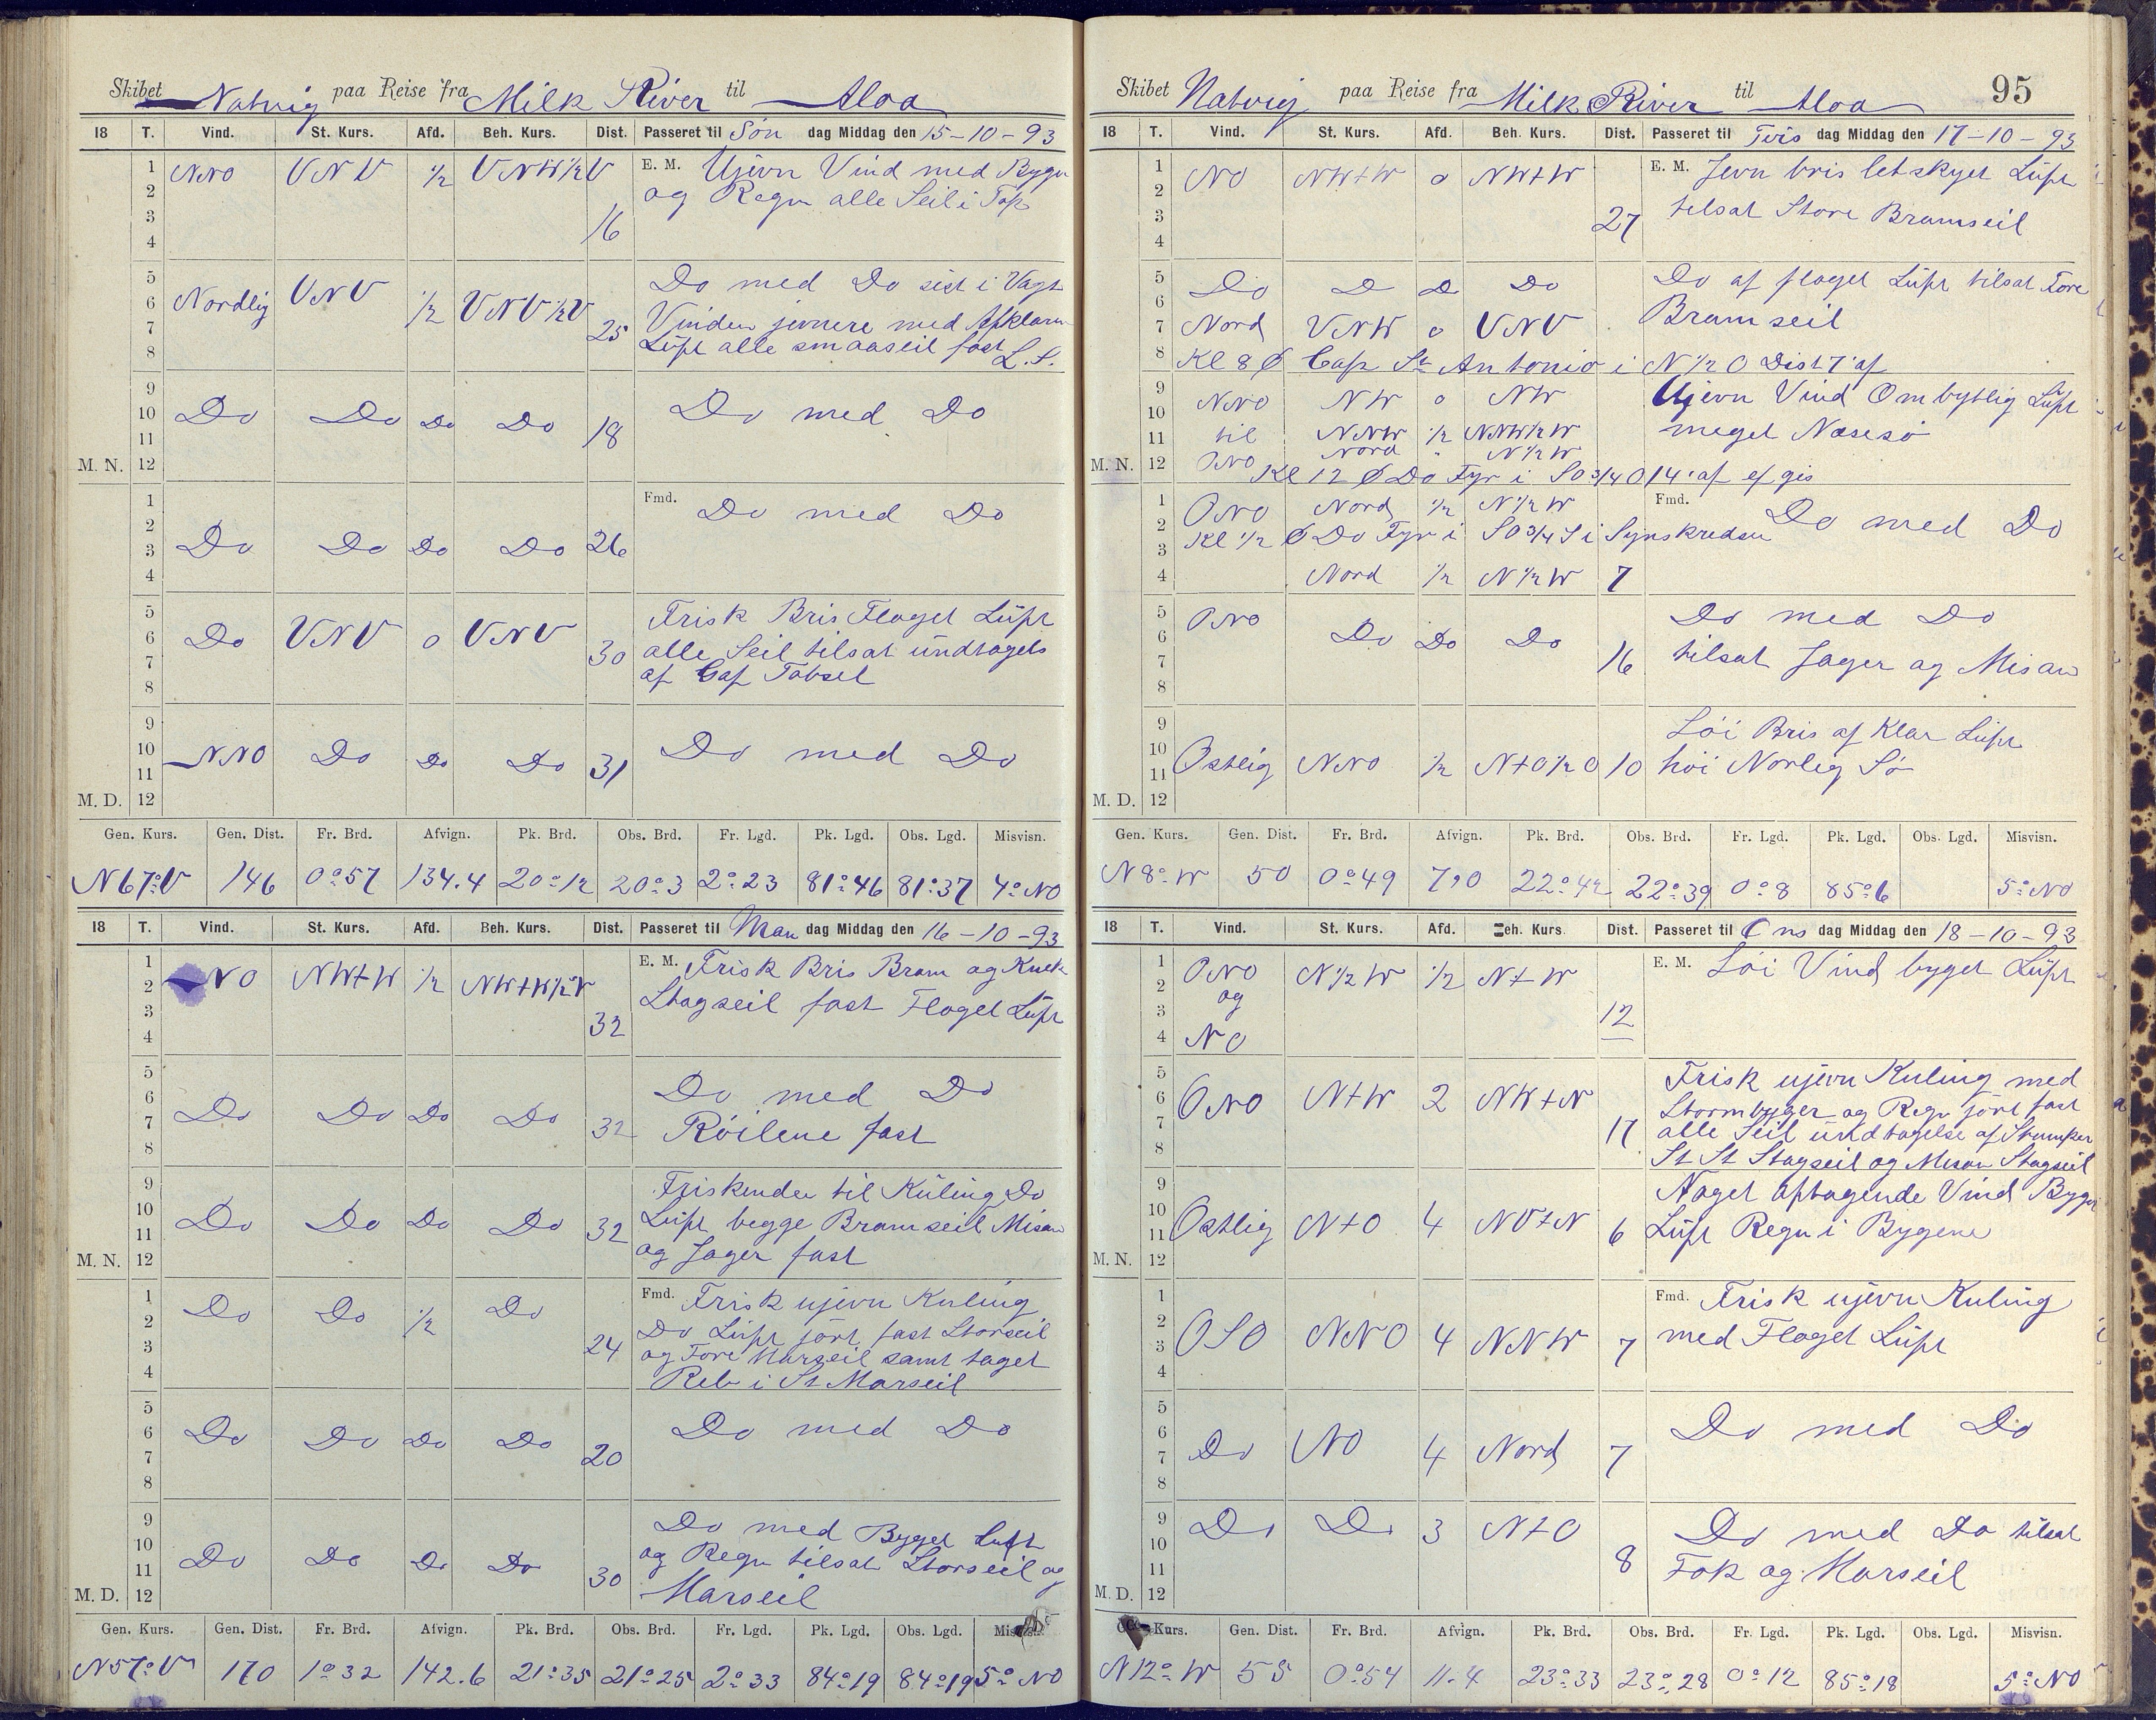 Skibet Natvig paa Reise fra Milk River til Aloa
18 T. Vind. St. Kurs. Afd. Beh. Kurs. Dist. Passeret til Søn dag Middag den 15-10-93
1 NNO VNV 1/2 VNW 1/2 V E. M. Ujevn Vind med Byger
2 og Regn alle Seil i Top
3 16
4
5 Do med Do sist i Vagt
6 Nordlig VNV 1/2 VNV 1/2 V Vinden jevnere med
7 25 Luft alle smaaseil fast L. S.
8
9
10 Do Do Do Do 18 Do med Do
11
M. N. 12
1 Fmd. Do med Do
2
3 Do Do Do Do 26
4
5 Frisk Bris Flaget Luft
6 Do VNV 0 VNV alle Seil tilsat undtagels
7 30 af Gaf Tobseil
8
9
10 NNO Do Do Do 31 Do med Do
11
M. D. 12
Gen. Kurs. Gen. Dist. Fr. Brd. Afvign. Pk. Brd. Obs. Brd. Fr. Lgd. Pk. Lgd. Obs. Lgd. Misvisn.
N67°V 146 0°57 134.4 20°12 20°3 2°23 81°46 81°37 4°NO
18 T. Vind. St. Kurs. Afd. Beh. Kurs. Dist. Passeret til Man dag Middag den 16-10-93
1 NO NW+W 1/2 NW+W 1/2 V E. M. Frisk Bris Bram og
2 Stagseil fast Flaget Luft
3 32
4
5 Do med Do
6
7 Do Do Do Do 32 Røilene fast
8
9 Friskende til Kuling Do
10 Do Do Do Do 32 Luft begge Bramseil Misan
11 og Jager fast
M. N. 12
1 Do Do 1/2 Do Fmd. Frisk ujevn Kuling
2 Do Luft gort fast Storseil
3 24 og Fore Marseil samt taget
4 Reb i St Marseil
5
6 Do Do Do Do Do med Do
7 20
8
9 Do med Byget Luft
10 og Regn tilsat Storseil og
11 Do Do Do Do 30 Marseil
M. D. 12
Gen. Kurs. Gen. Dist. Fr. Brd. Afvign. Pk. Brd. Obs. Brd. Fr. Lgd. Pk. Lgd. Obs. Lgd.
N57°V 170 1°32 142.6 21°35 21°25 2°33 84°19 84°19 5°NO
Skibet Natvig paa Reise fra Milk River til Aloa 95
18 T. Vind. St. Kurs. Afd. Beh. Kurs. Dist. Passeret til Tirs dag Middag den 17-10-93
1 NO NW+W 0 NW+W E. M. Jevn bris letskyet Luft
2 tilsat Store Bramseil
3 27
4
5 Do D D Do Do af flaget Luft tilsat Fore
6
7 Nord VNW 0 VNV Bramseil
8 Kl 8 Ø Cap St Antonio i N 1/2 O Dist 7' af
9 NNO NW 0 NW Ujevn Vind Ombytlig Luft
10
11 til NNW 1/2 NNW 1/2 W meget Næsesø
Nord " N 1/2 W
M. N. 12 ONO Kl 12 Ø Do Fyr i SO 3/4 O 14' af ef gis
1 ONO Nord 1/2 N 1/2 W Fmd. Do med Do
2 Kl 1/2 Ø Do Fyr i SO 3/4 S i Synskredsen
3
4 Nord 1/2 N 1/2 W 7
5 ONO Do med Do
6 Do Do Do
7 16 tilsat Jager og Misan
8
9 Løi Bris af Klar Luft
10
11 Ostlig NNO 1/2 N+O 1/2 O 10 høi Norlig Sø
M. D. 12
Gen. Kurs. Gen. Dist. Fr. Brd. Afvign. Pk. Brd. Obs. Brd. Fr. Lgd. Pk. Lgd. Obs. Lgd. Misvisn.
N8°W 50 0°49 7,0 22°42 22°39 0°8 85°6 5°NO
18 T. Vind. St. Kurs. Afd. Beh. Kurs Dist. Passeret til Ons dag Middag den 18-10-93
1 ONO N 1/2 W 1/2 N+W E. M. Løi Vind byget Luft
2 og
3 12
4 NO
5 Frisk ujevn Kuling med
6 ONO N+W 2 NW+N Stormbyger og Regn gjort fast
7 17 alle Seil undtagelse af Stumper
8 St St Stagseil og Mesan Stagseil
9 Noget aftagende Vind Byget
10
11 Ostlig N+O 4 NV+N 6 Luft Regn i Bygene
M. N. 12
1 Fmd. Frisk ujevn Kuling
2
3 OSO NNO 4 NNW 7 med Flaget Luft
4
5
6 Do med Do
7 Do NO 4 Nord 7
8
9 Do Do 3 N+O Do med Do tilsat
10
11 8 Fok og Marseil
M. D. 12
Kurs. Gen. Dist. Fr. Brd. Afvign. Pk. Brd. Obs. Brd. Fr. Lgd. Pk. Lgd. Obs. Lgd. Misvisn.
N12°W 55 0°54 11.4 23°33 23°28 0°12 85°18 5°NO